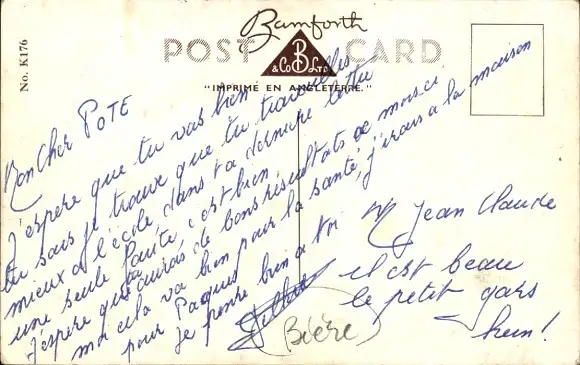 Bamforth
POST CARD
B
& Co LTD
"IMPRIMÉ EN ANGLETERRE."
No. K176
Mon Cher POTE
J'espère que tu vas bien
tu sais je trouve que tu travailles
mieux a l'école dans ta dernière lettre
une seule faute, c'est bien
J'espère que tu auras de bons résultats ce mois ci
moi cela va bien pour la santé, j'irais a la maison
pour Paques
je pense bien a toi
(Bière)
Mr Jean Claude
il est beau
le petit gars
hein!